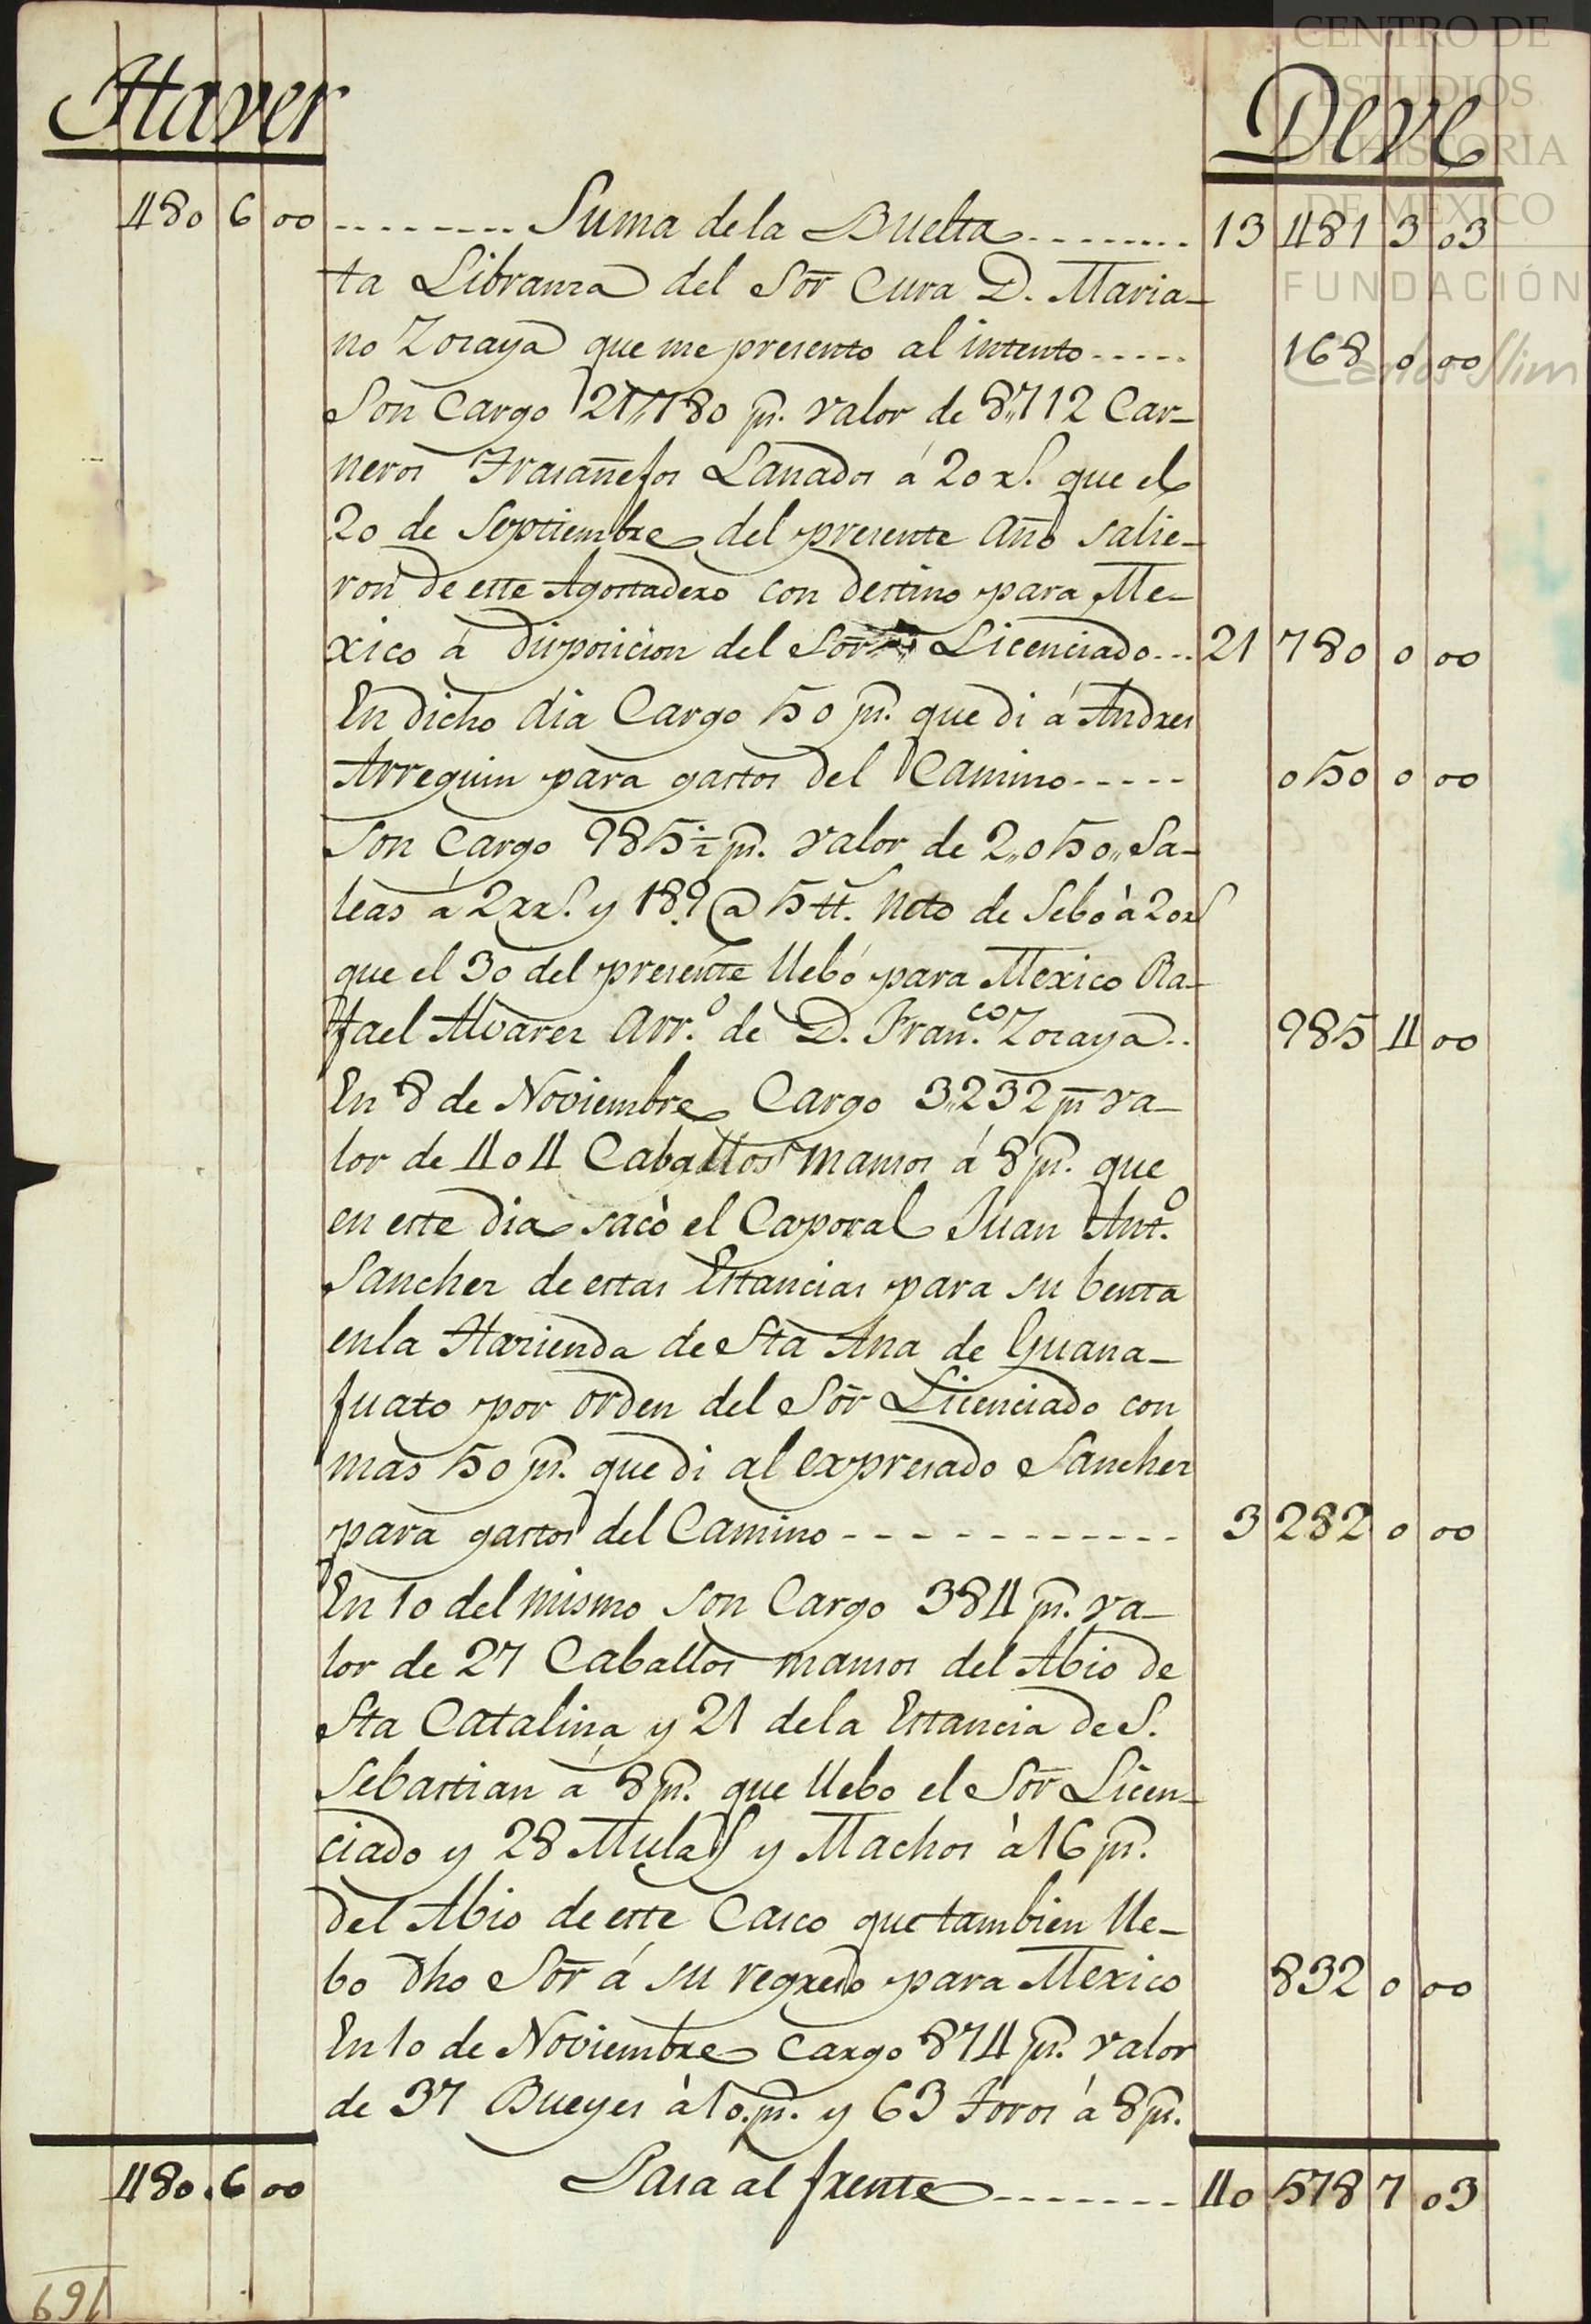 CENTRO DE
ESTUDIOS
DE HISTORIA
DE MÉXICO
FUNDACIÓN
Carlos Slim
Haver Deve
480 6 00 --------- Suma de la Buelta -------- 13 481 3 03
ta Libranza del Sōr Cura D. Maria-
no Zozaya que me presento al intento ----- 168 0 00
Son Cargo 21,,780 ps. valor de 8,,712 Car-
neros Trasañejos Lanados á 20 rs. que el
20 de Septiembre del presente Año salie-
ron de este Agostadero con destino para Me-
xico á disposicion del Sōr Licenciado --- 21 780 0 00
En dicho dia Cargo 50 ps. que di á Andres
Arreguin para gastos del Camino ----- 050 0 00
Son Cargo 985½ ps. valor de 2,,050,, Sa-
leas á 2 rrs. y 189 @ 5 tt. Neto de Sebo à 20 rs
que el 30 del presente llebó para Mexico Ra-
fael Alvarez Arr.º de D. Fran.co Zozaya .. 985 4 00
En 8 de Noviembre Cargo 3,,232 ps va-
lor de 404 Caballos mansos á 8 ps. que
en este dia sacò el Caporal Juan Ant.º
Sanchez de estas Estancias para su benta
en la Hazienda de Sta Ana de Guana-
juato por orden del Sōr Licenciado con
mas 50 ps. que di al expresado Sanchez
para gastos del Camino ------------ 3 282 0 00
En 10 del mismo son Cargo 384 ps. va-
lor de 27 Caballos mansos del Abio de
Sta Catalina y 21 de la Estancia de S.
Sebastian á 8 ps. que llebo el Sōr Licen-
ciado y 28 Mulas y Machos à 16 ps.
del Abio de este Casco que tambien lle-
bo dho Sōr á su regreso para Mexico 832 0 00
En 10 de Noviembre Cargo 874 ps. valor
de 37 Bueyes à 10 ps. y 63 Toros á 8 ps.
480 . 6 00 Pasa al frente ------- 40 578 7 03
169